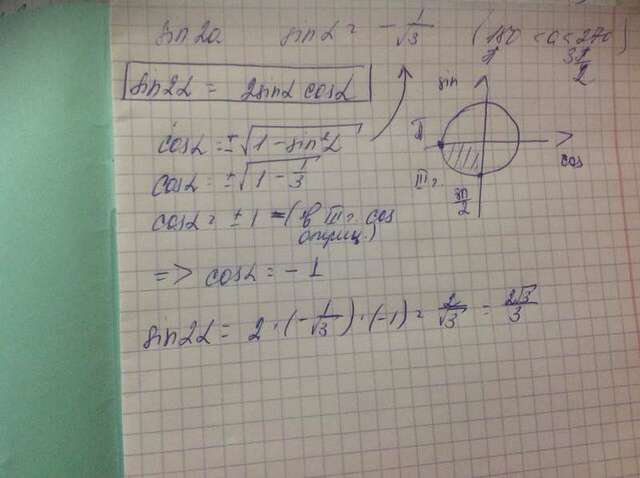 sin2a sinα = -1/√3 (180 < a < 270)
π 3π/2
sin2α = 2sinα cosα
cosα = ±√(1 - sin²α)
cosα = ±√(1 - 1/3)
cosα = ±1 - (в III г. cos
отриц.)
=> cosα = -1
sin2α = 2 · (-1/√3) · (-1) = 2/√3 = 2√3/3
sin
cos
π
III г.
3π/2